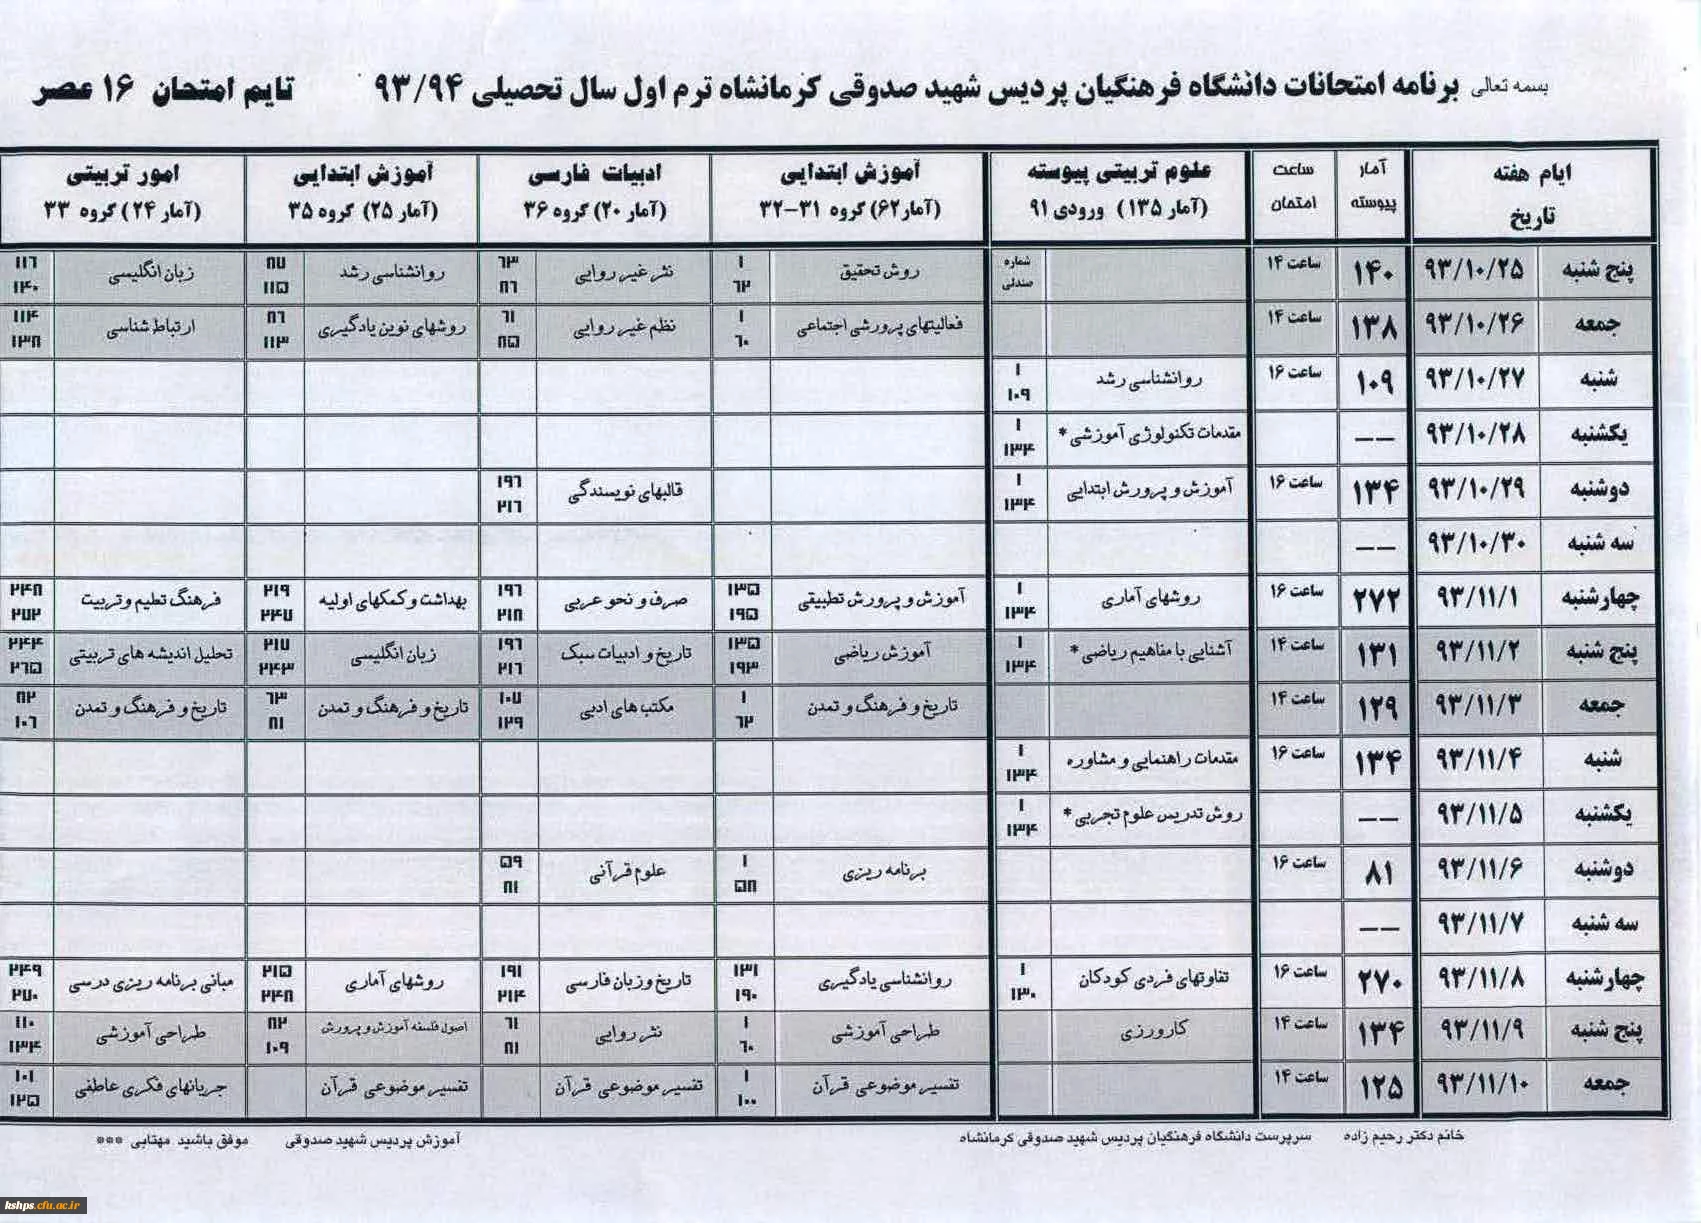 بسمه تعالی برنامه امتحانات دانشگاه فرهنگیان پردیس شهید صدوقی کرمانشاه ترم اول سال تحصیلی ۹۳/۹۴ تایم امتحان ۱۶ عصر
ایام هفته تاریخ | آمار پیوسته | ساعت امتحان | علوم تربیتی پیوسته (آمار ۱۳۵) ورودی ۹۱ | آموزش ابتدایی (آمار۶۲) گروه ۳۱-۳۲ | ادبیات فارسی (آمار ۲۰) گروه ۳۶ | آموزش ابتدایی (آمار ۲۵) گروه ۳۵ | امور تربیتی (آمار ۲۴) گروه ۳۳
پنج شنبه ۹۳/۱۰/۲۵ ۱۴۰ ساعت ۱۴ شماره صندلی روش تحقیق ۱ ۶۲ نثر غیر روایی ۶۳ ۸۶ روانشناسی رشد ۸۷ ۱۱۵ زبان انگلیسی ۱۱۶ ۱۴۰
جمعه ۹۳/۱۰/۲۶ ۱۳۸ ساعت ۱۴ فعالیتهای پرورشی اجتماعی ۱ ۶۰ نظم غیر روایی ۶۱ ۸۵ روشهای نوین یادگیری ۸۶ ۱۱۳ ارتباط شناسی ۱۱۴ ۱۳۸
شنبه ۹۳/۱۰/۲۷ ۱۰۹ ساعت ۱۶ روانشناسی رشد ۱ ۱۰۹
یکشنبه ۹۳/۱۰/۲۸ -- مقدمات تکنولوژی آموزشی * ۱ ۱۳۴
دوشنبه ۹۳/۱۰/۲۹ ۱۳۴ ساعت ۱۶ آموزش و پرورش ابتدایی ۱ ۱۳۴ قالبهای نویسندگی ۱۹۶ ۲۱۶
سه شنبه ۹۳/۱۰/۳۰ --
چهارشنبه ۹۳/۱۱/۱ ۲۷۲ ساعت ۱۶ روشهای آماری ۱ ۱۳۴ آموزش و پرورش تطبیقی ۱۳۵ ۱۹۵ صرف و نحو عربی ۱۹۶ ۲۱۸ بهداشت و کمکهای اولیه ۲۱۹ ۲۴۷ فرهنگ تعلیم و تربیت ۲۴۸ ۲۷۲
پنج شنبه ۹۳/۱۱/۲ ۱۳۱ ساعت ۱۴ آشنایی با مفاهیم ریاضی * ۱ ۱۳۴ آموزش ریاضی ۱۳۵ ۱۹۳ تاریخ و ادبیات سبک ۱۹۶ ۲۱۶ زبان انگلیسی ۲۱۷ ۲۴۳ تحلیل اندیشه های تربیتی ۲۴۴ ۲۶۵
جمعه ۹۳/۱۱/۳ ۱۲۹ ساعت ۱۴ تاریخ و فرهنگ و تمدن ۱ ۶۲ مکتب های ادبی ۱۰۷ ۱۲۹ تاریخ و فرهنگ و تمدن ۶۳ ۸۱ تاریخ و فرهنگ و تمدن ۸۲ ۱۰۶
شنبه ۹۳/۱۱/۴ ۱۳۴ ساعت ۱۶ مقدمات راهنمایی و مشاوره ۱ ۱۳۴
یکشنبه ۹۳/۱۱/۵ -- روش تدریس علوم تجربی * ۱ ۱۳۴
دوشنبه ۹۳/۱۱/۶ ۸۱ ساعت ۱۶ برنامه ریزی ۱ ۵۸ علوم قرآنی ۵۹ ۸۱
سه شنبه ۹۳/۱۱/۷ --
چهارشنبه ۹۳/۱۱/۸ ۲۷۰ ساعت ۱۶ تفاوتهای فردی کودکان ۱ ۱۳۰ روانشناسی یادگیری ۱۳۱ ۱۹۰ تاریخ و زبان فارسی ۱۹۱ ۲۱۴ روشهای آماری ۲۱۵ ۲۴۸ مبانی برنامه ریزی درسی ۲۴۹ ۲۷۰
پنج شنبه ۹۳/۱۱/۹ ۱۳۴ ساعت ۱۴ کارورزی طراحی آموزشی ۱ ۶۰ نثر روایی ۶۱ ۸۱ اصول فلسفه آموزش و پرورش ۸۲ ۱۰۹ طراحی آموزشی ۱۱۰ ۱۳۴
جمعه ۹۳/۱۱/۱۰ ۱۲۵ ساعت ۱۴ تفسیر موضوعی قرآن ۱ ۱۰۰ تفسیر موضوعی قرآن تفسیر موضوعی قرآن جریانهای فکری عاطفی ۱۰۱ ۱۲۵
خانم دکتر رحیم زاده سرپرست دانشگاه فرهنگیان پردیس شهید صدوقی کرمانشاه آموزش پردیس شهید صدوقی موفق باشید مهتابی ***
kshps.cfu.ac.ir